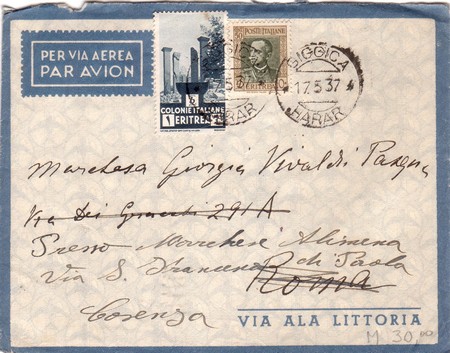 PER VIA AEREA
PAR AVION
COLONIE ITALIANE
1 ERITREA
POSTE ITALIANE
ERITREA
SIGGICA
17.5.37
HARAR
Marchesa Giorgia Vivaldi Pasqua
Via Dei 291 A
Presso Marchese Alimena
Via S. Francesco di Paola
Roma
Cosenza
VIA ALA LITTORIA
M 30,00